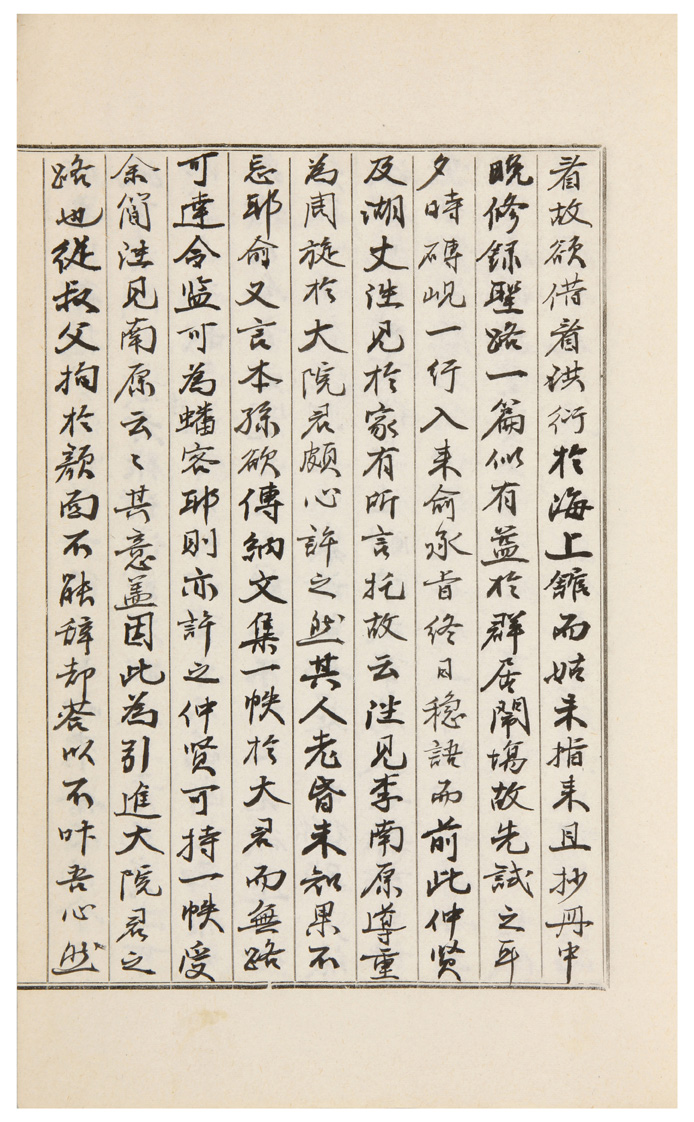 看故欲借看洪衍於海上舘而姑未指来且抄丹中
晩修録聖路一篇似有益於群居閙場故先試之耳
夕時磚峴一行入来俞承旨終日穏語而前此仲贤
及湖丈洼見於家有所言托故云洼見李南原遵重
為周旋於大院君頗心許之然其人老昏未知果不
忘耶俞又言本孫欲傳納文集一帙於大君而無路
可達令监可為蟠客耶則亦許之仲贤可持一帙受
余简洼見南原云々其意盖因此為引進大院君之
路也従叔父拘於顔面不能辞却答以不咔吾心然